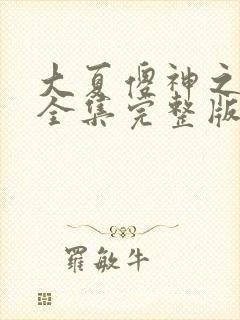 大夏傻神之
全集完整版
羅敏牛